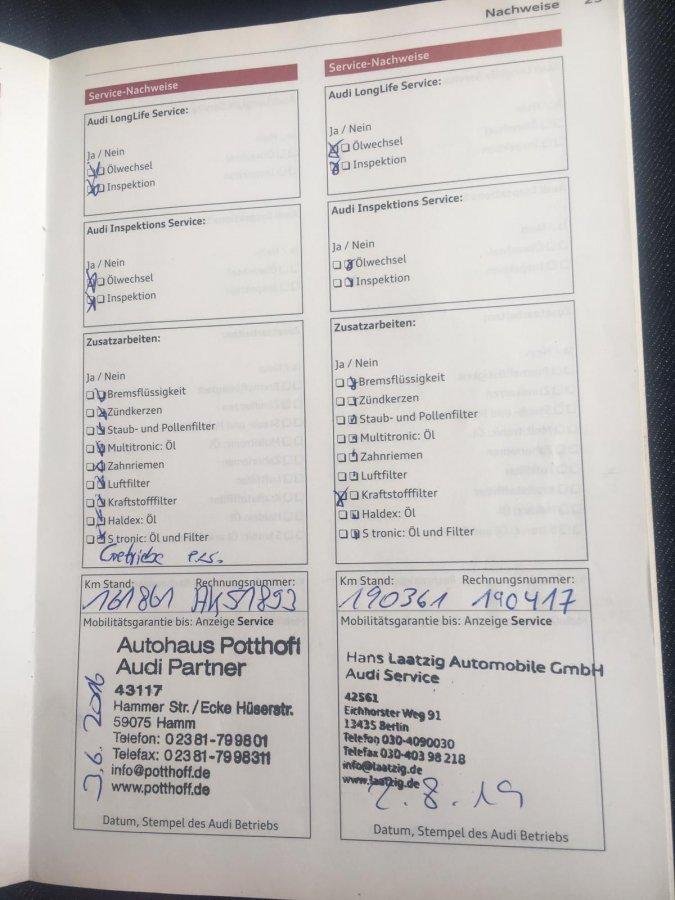 Nachweise
Service-Nachweise
Audi LongLife Service:
Ja / Nein
Ölwechsel
Inspektion
Audi Inspektions Service:
Ja / Nein
Ölwechsel
Inspektion
Zusatzarbeiten:
Ja / Nein
Bremsflüssigkeit
Zündkerzen
Staub- und Pollenfilter
Multitronic: Öl
Zahnriemen
Luftfilter
Kraftstofffilter
Haldex: Öl
S tronic: Öl und Filter
Getriebe
Km Stand: Rechnungsnummer:
161861 AK51893
Mobilitätsgarantie bis: Anzeige Service
Autohaus Potthoff
Audi Partner
43117
Hammer Str./Ecke Hüserstr.
59075 Hamm
Telefon: 0 23 81-79 98 01
Telefax: 0 23 81-79 98 311
info@potthoff.de
www.potthoff.de
3.6. 2016
Datum, Stempel des Audi Betriebs
Service-Nachweise
Audi LongLife Service:
Ja / Nein
Ölwechsel
Inspektion
Audi Inspektions Service:
Ja / Nein
Ölwechsel
Inspektion
Zusatzarbeiten:
Ja / Nein
Bremsflüssigkeit
Zündkerzen
Staub- und Pollenfilter
Multitronic: Öl
Zahnriemen
Luftfilter
Kraftstofffilter
Haldex: Öl
S tronic: Öl und Filter
Km Stand: Rechnungsnummer:
190361 190417
Mobilitätsgarantie bis: Anzeige Service
Hans Laatzig Automobile GmbH
Audi Service
42561
Eichhorster Weg 91
13435 Berlin
Telefon 030-4090030
Telefax 030-403 98 218
info@laatzig.de
www.laatzig.de
2.8.19
Datum, Stempel des Audi Betriebs